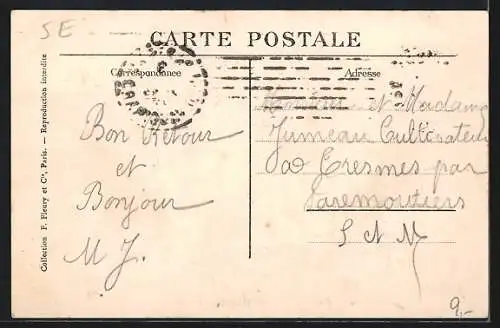 SE
CARTE POSTALE
Correspondance
Adresse
Collection F. Fleury et Cie, Paris. — Reproduction interdite
Bon Retour
et
Bonjour
M J.
Monsieur et Madame
Jumeau Cultivateur
à Cresmes par
Faremoutiers
S et M
9,-